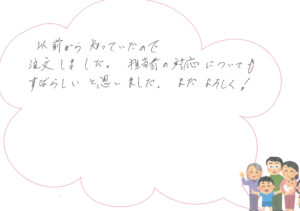 以前から知っていたので
注文しました。担当者の対応についても
すばらしいと思いました。またよろしく!